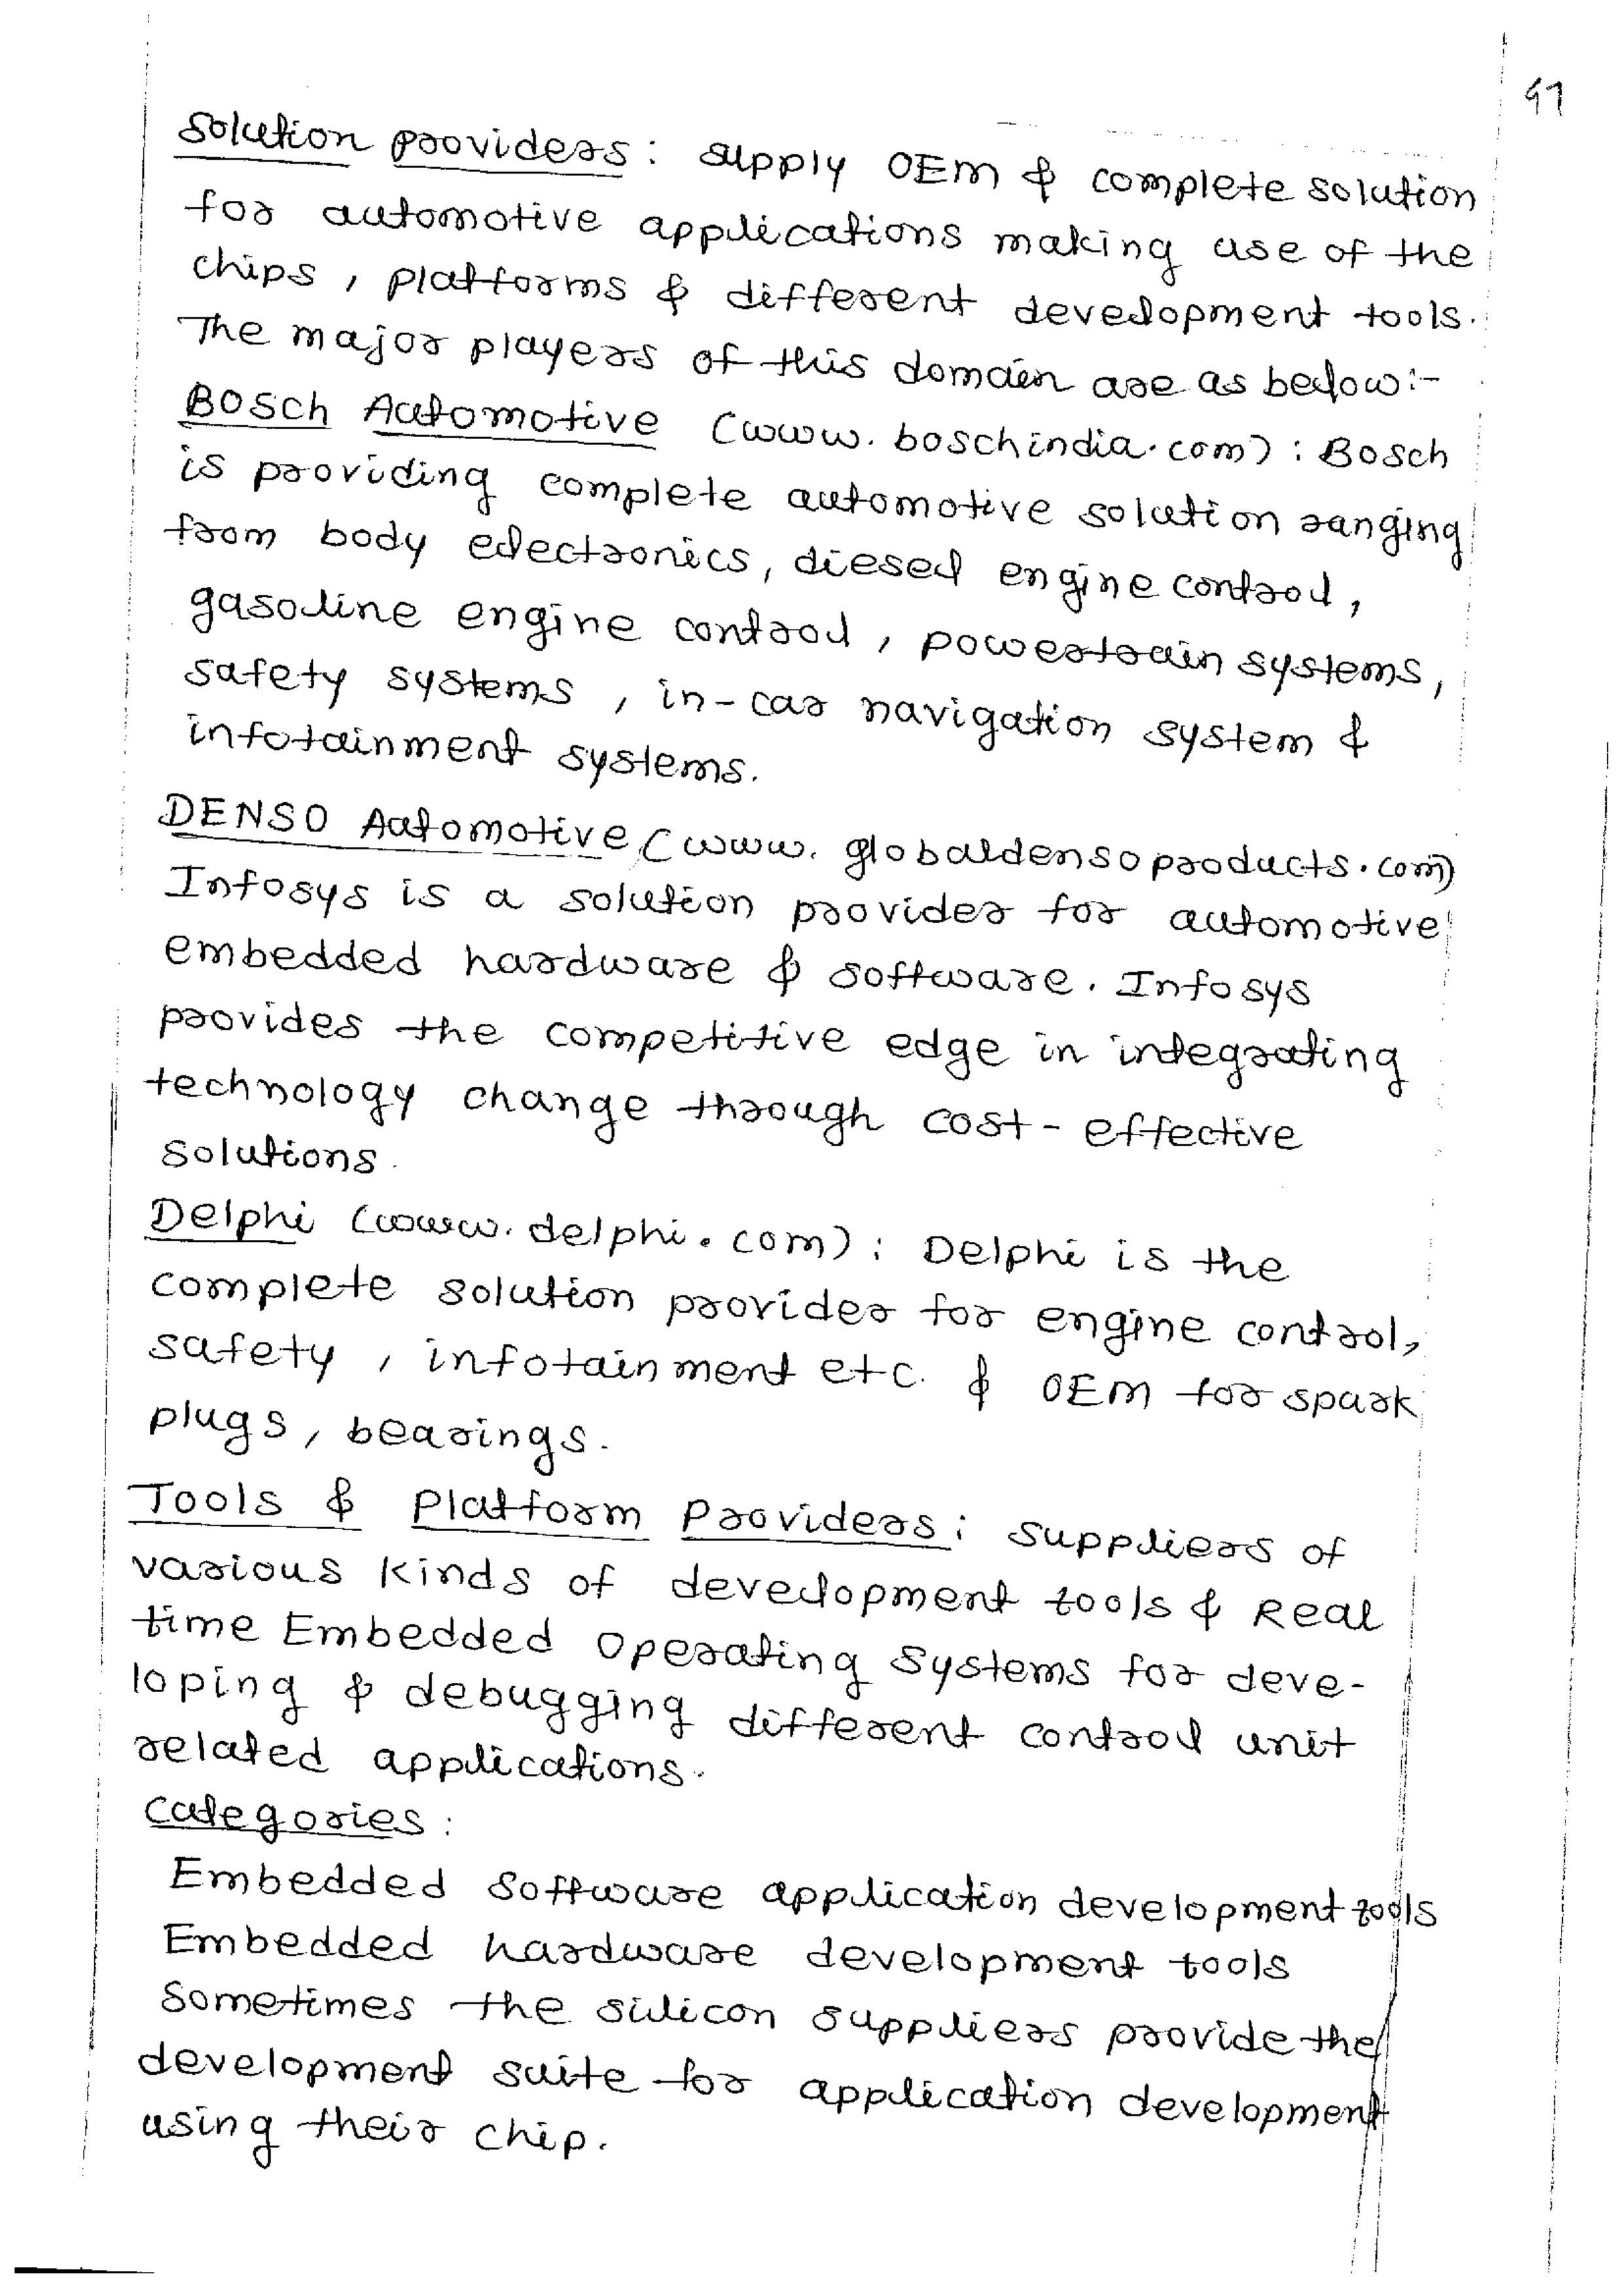 41
Solution providers: supply OEM & complete solution
for automotive applications making use of the
chips, platforms & different development tools.
The major players of this domain are as below:-
Bosch Automotive (www.boschindia.com): Bosch
is providing complete automotive solution ranging
from body electronics, diesel engine control,
gasoline engine control, powertrain systems,
safety systems, in-car navigation system &
infotainment systems.
DENSO Automotive (www.globaldensoproducts.com)
Infosys is a solution provider for automotive
embedded hardware & software. Infosys
provides the competitive edge in integrating
technology change through cost-effective
solutions.
Delphi (www.delphi.com): Delphi is the
complete solution provider for engine control,
safety, infotainment etc. & OEM for spark
plugs, bearings.
Tools & Platform Providers: Suppliers of
various kinds of development tools & Real
time Embedded Operating Systems for deve-
loping & debugging different control unit
related applications.
Categories:
Embedded Software application development tools
Embedded hardware development tools
Sometimes the silicon suppliers provide the
development suite for application development
using their chip.